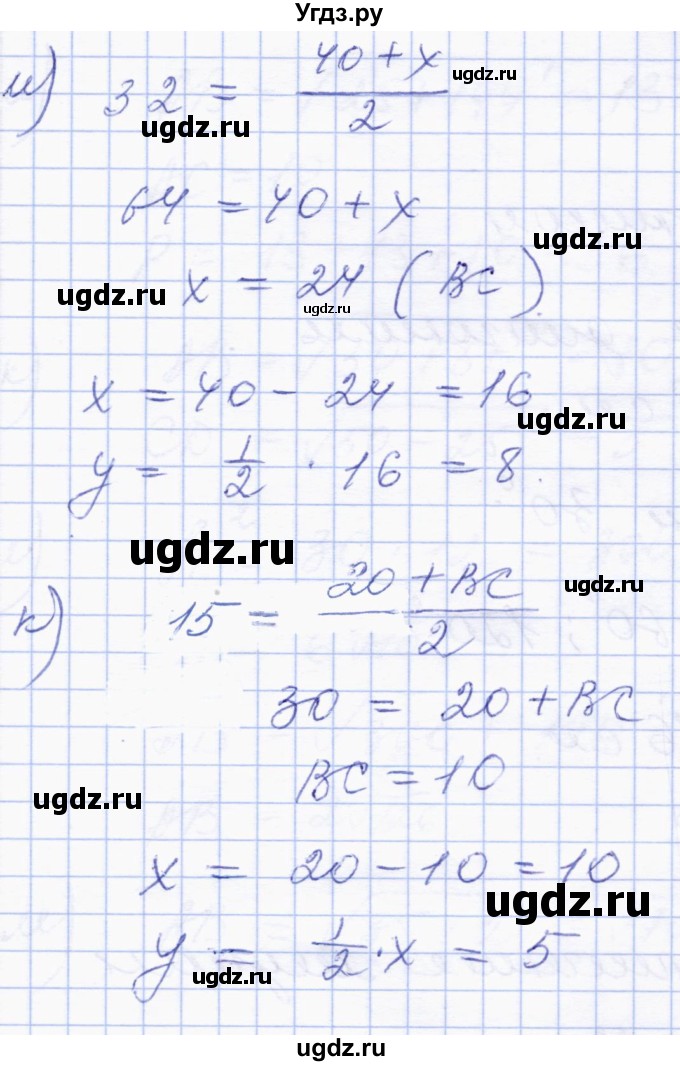 Угдз.ру
и) 32 = (40 + x)/2
ugdz.ru
ugdz.ru
64 = 40 + x
ugdz.ru
x = 24 (BC).
ugdz.ru
ugdz.ru
x = 40 - 24 = 16
ugdz.ru
y = 1/2 · 16 = 8.
ugdz.ru
к) 15 = (20 + BC)/2
ugdz.ru
30 = 20 + BC
BC = 10
ugdz.ru
x = 20 - 10 = 10
ugdz.ru
y = 1/2 · x = 5
ugdz.ru
ugdz.ru